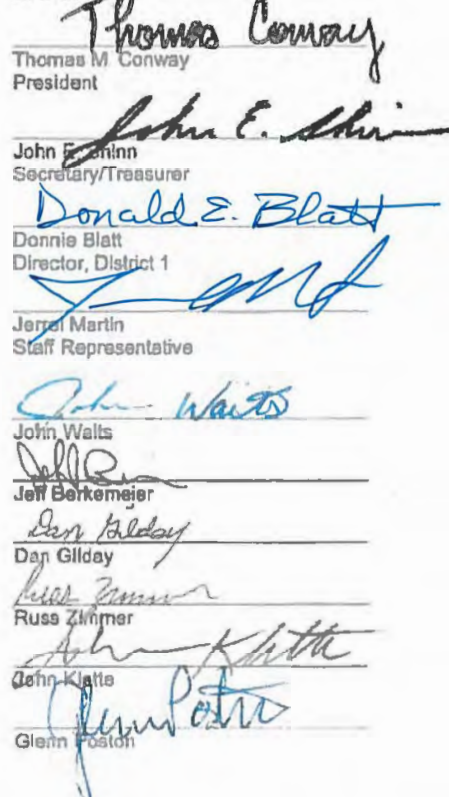 Thomas Conway
Thomas M Conway
President
John E. Shinn
John E. Shinn
Secretary/Treasurer
Donald E. Blatt
Donnie Blatt
Director, District 1
Jerrel Martin
Staff Representative
John Waits
John Waits
Jeff Berkemeier
Dan Gilday
Dan Gilday
Russ Zimmer
Russ Zimmer
John Klatte
John Klatte
Glenn Poston
Glenn Poston